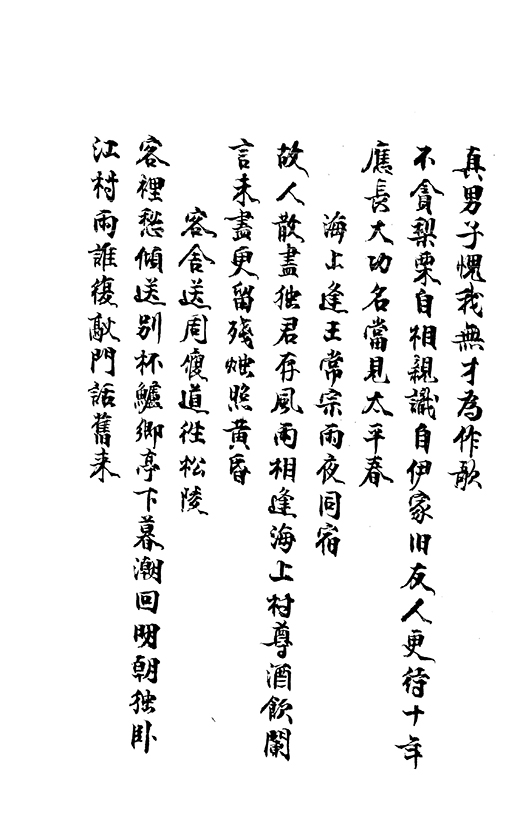 真男子愧我無才為作歌
不貪梨栗自相親識自伊家旧友人更待十年
應長大功名當見太平春
海上逢王常宗雨夜同宿
故人散盡独君存風雨相逢海上村尊酒飲闌
言未盡更留殘烛照黄昏
客舎送周履道往松陵
客裡愁傾送别杯鱸鄉亭下暮潮回明朝独卧
江村雨誰復敲門話舊来